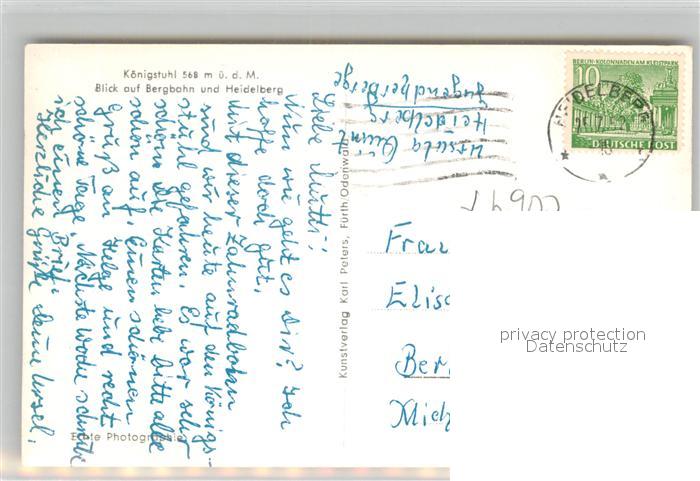 Königstuhl 568 m ü. d. M.
Blick auf Bergbahn und Heidelberg
Liebe Mutti!
Nun wie geht es Dir? Ich
hoffe doch gut.
Mit dieser Zahnradbahn
sind wir heute auf den Königs-
stuhl gefahren. Es war sehr
schön. Die Karten hebe bitte alle
schön auf. Einen schönen
Gruß an Helge und recht
schöne Tage. Nächste Woche schreibe
ich einen Brief.
Herzliche Grüße Deine Ursel.
Echte Photographie
Kunstverlag Karl Peters, Fürth/Odenwald
Ursula
Heidelberg
Jugendherberge
BERLIN-KOLONNADEN AM KLEISTPARK
10
DEUTSCHE POST
HEIDELBERG
Frau
Elis
Ber
Mich
privacy protection
Datenschutz